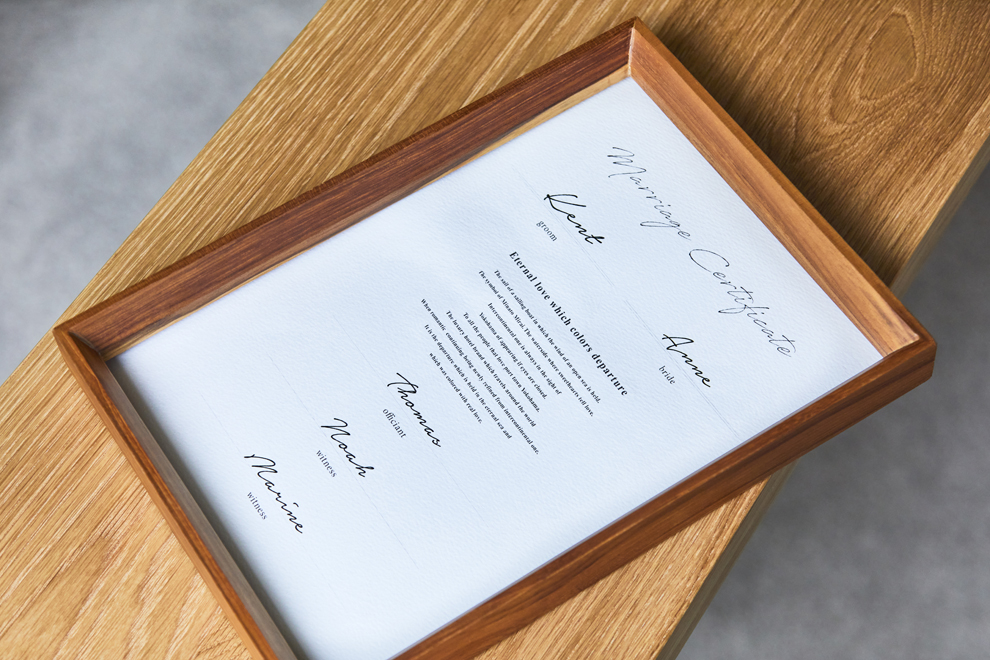 Marriage Certificate
Kent
groom
Anne
bride
Eternal love which colors departure
The sail of a sailing boat in which the wind of an open sea is held.
The symbol of Minato Mirai. The waterside where sweethearts tell love.
Intercontinental one is always in the sight of
Yokohama of appearing if eyes are closed.
To all the people that love port town Yokohama.
The luxury hotel brand which travels around the world
When romantic continuing being newly refined from intercontinental one.
It is the departure which is held in the eternal sea and
which was colored with real love.
Thomas
officiant
Noah
witness
Marine
witness